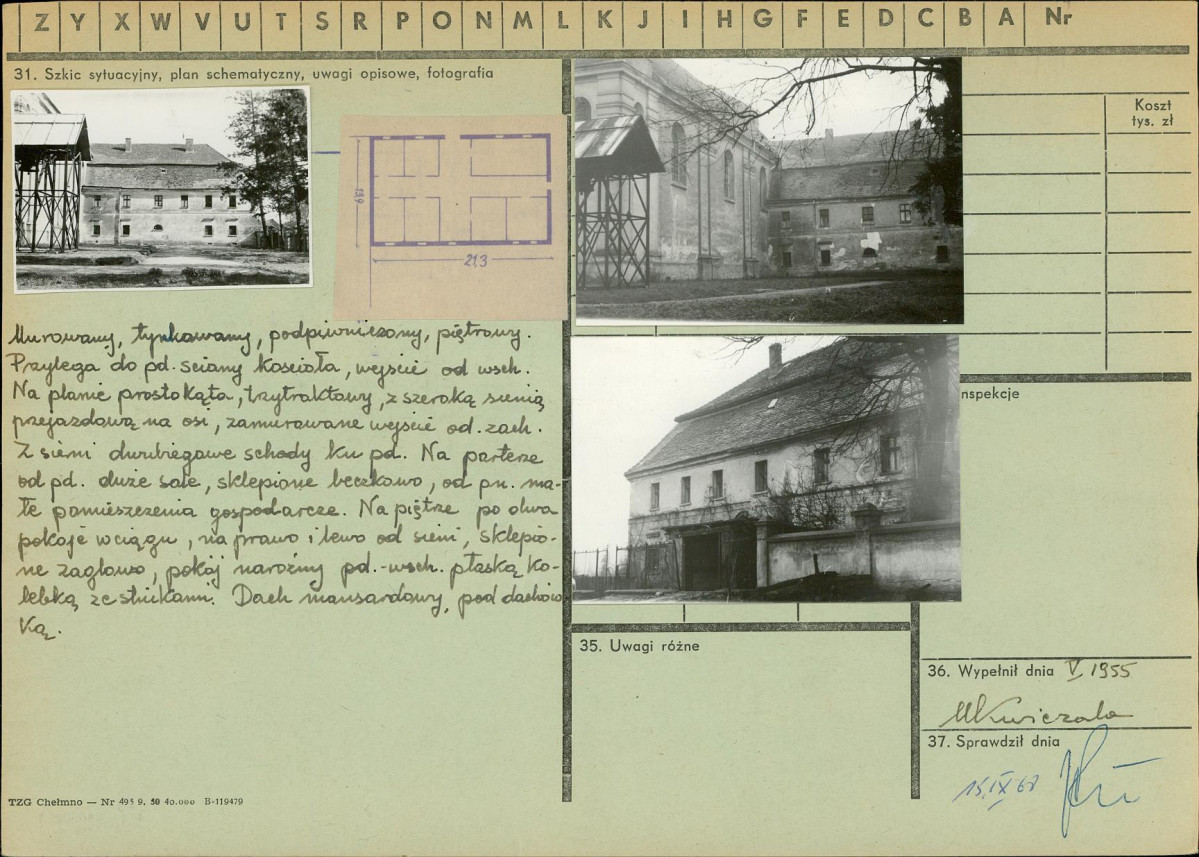 Z Y X W V U T S R P O N M L K J I H G F E D C B A Nr
31. Szkic sytuacyjny, plan schematyczny, uwagi opisowe, fotografia
Koszt
tys. zł
13,9
21,3
Murowany, tynkowany, podpiwniczony, piętrowy.
Przylega do pd. ściany kościoła, wejście od wsch.
Na planie prostokąta, trzytraktowy, z szeroką sienią
przejazdową na osi, zamurowane wejście od zach.
Z sieni dwubiegowe schody ku pd. Na parterze
od pd. duże sale, sklepione beczkowo, od pn. ma-
łe pomieszczenia gospodarcze. Na piętrze po dwa
pokoje w ciągu, na prawo i lewo od sieni, sklepio-
ne żaglowo, pokój narożny pd.-wsch. płaską ko-
lebką ze stiukami. Dach mansardowy, pod dachów
ką.
nspekcje
35. Uwagi różne
36. Wypełnił dnia V 1955
MKwiczala
37. Sprawdził dnia
15.IX 68
TZG Chełmno — Nr 495 9. 59 40.000 B-119479